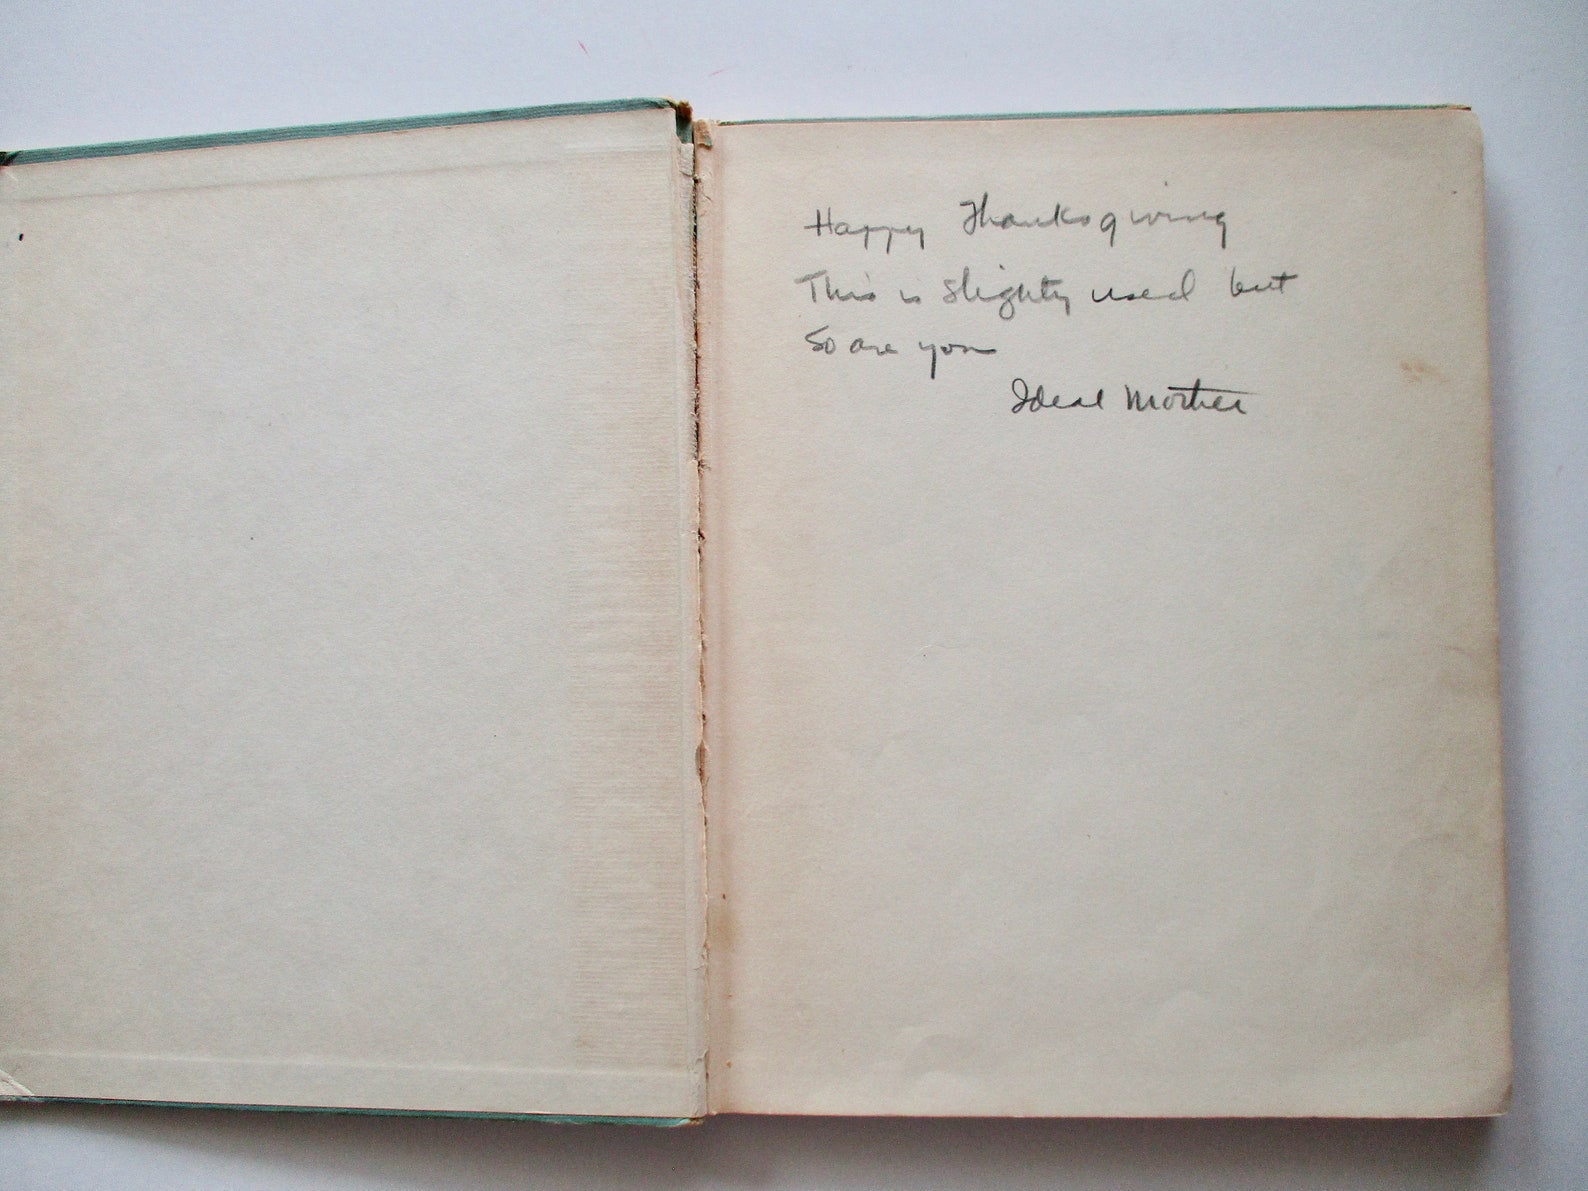 Happy Thanksgiving
This is slightly used but
So are you
Ideal Mother